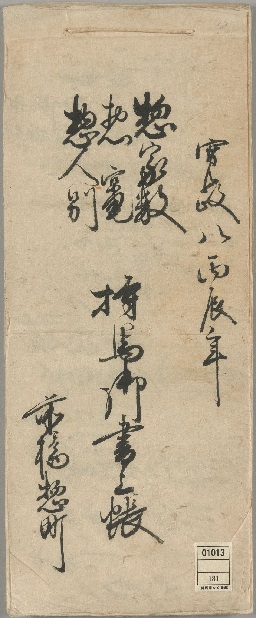 寛政八丙辰年
惣家数
惣竈
惣人別
持馬御書上帳
前橋惣町
01013
131